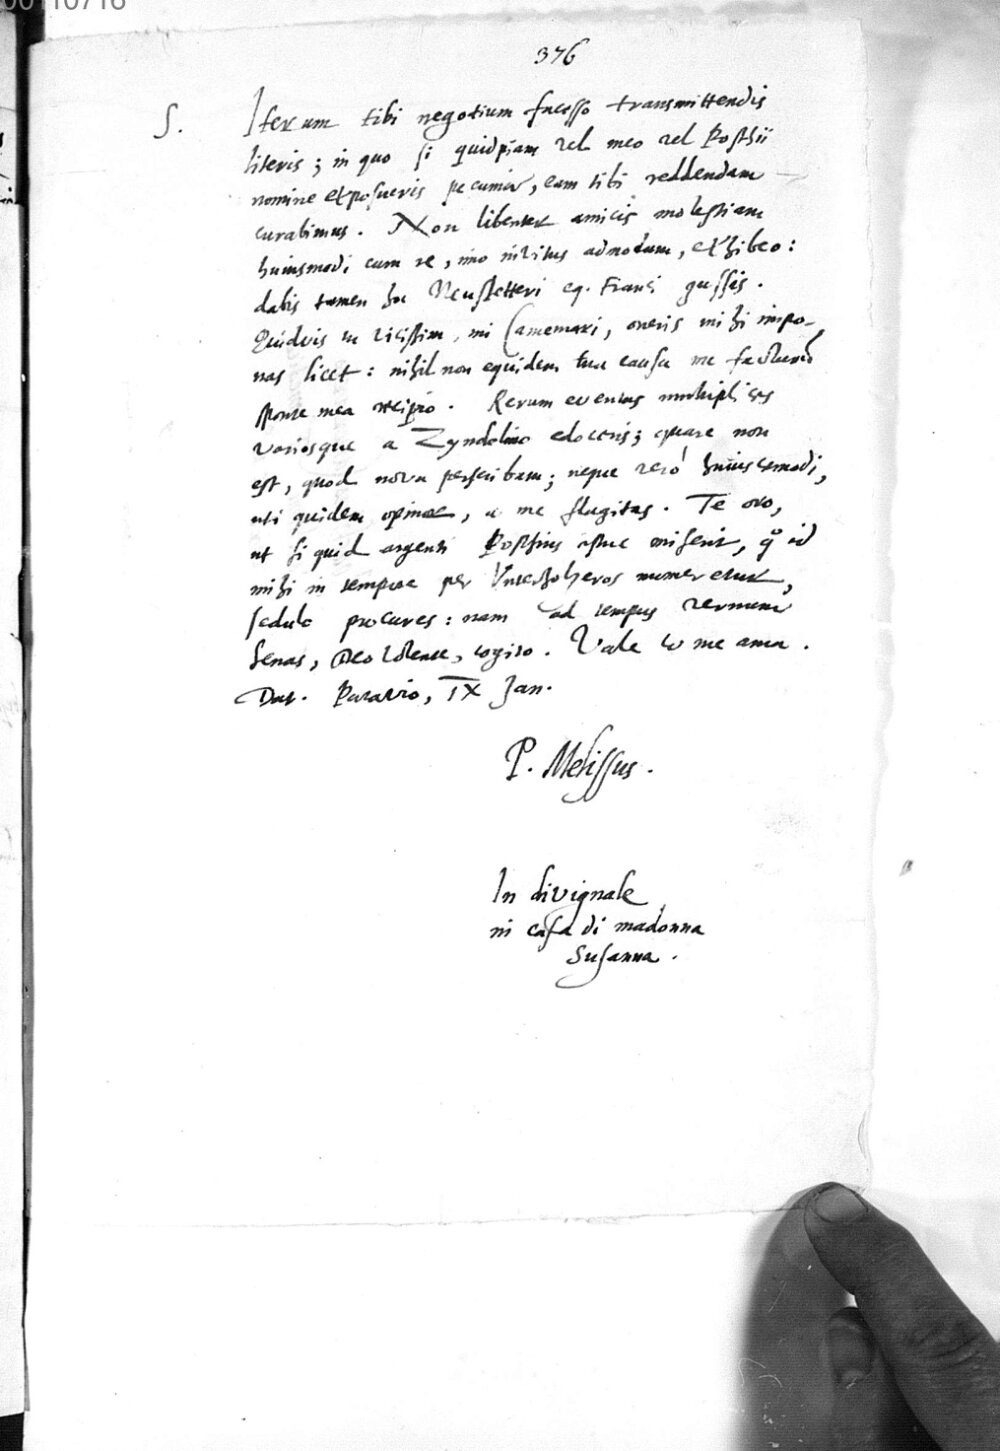 00110716
376
S. Iterum tibi negotium facesso transmittendis
literis; in quo si quidpiam vel meo vel Posthii
nomine exposueris pecuniae, eam tibi reddendam
curabimus. Non libenter amicis molestiam
huiusmodi cum re, imo invitus admodum, exhibeo:
dabis tamen hoc Neustetteri eq. Franci iussis.
Quidvis tu vicissim, mi Camemari, oneris mihi impo-
nas licet: nihil non equidem tua causa me facturum
sponte mea recipio. Rerum eventus multiplices
variosque a Zyndelino edoceris; quare non
est, quod nova perscribam; neque verò huiuscemodi,
uti quidem opinor, a me flagitas. Te oro,
ut si quid argenti Posthius istuc miserit, q° id
mihi in tempore per Untersholzeros numeretur,
sedulo procures: nam ad tempus vernum
Senas, Deo volente, cogito. Vale et me ama.
Dat. Patavio, IX Jan.
P. Melissus.
In divignale
in casa di madonna
Susanna.